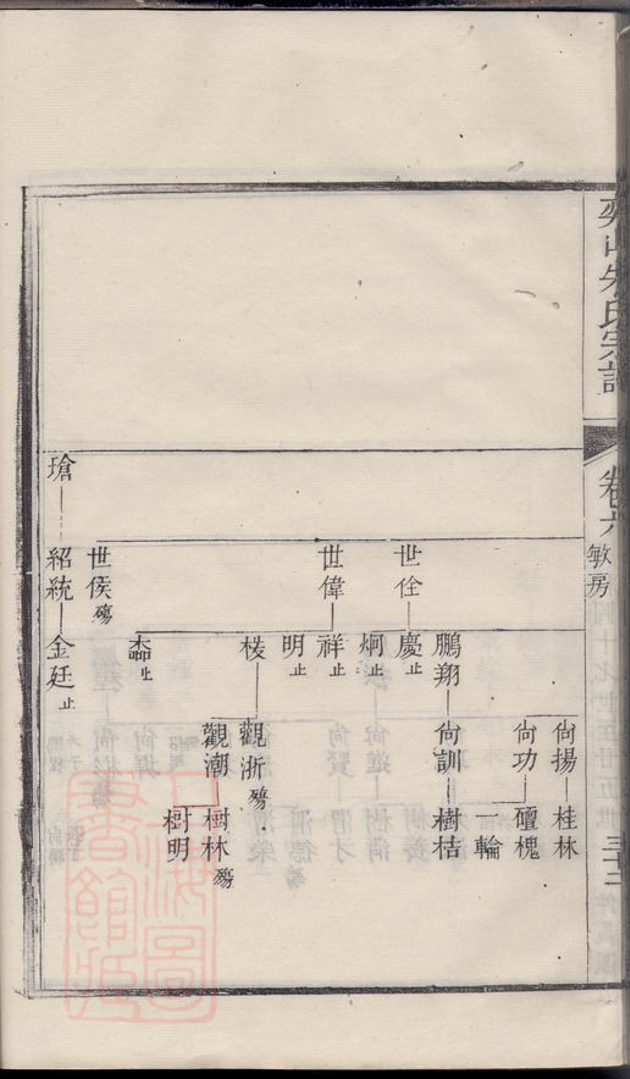 山朱氏宗譜
卷六
敏房
三十二
尙揚 桂林
尙功 磚槐
一輪
鵬翔 尙訓 樹桔
世佺 慶止
炯止
世偉 祥止
明止
觀浙殤
觀潮 樹林殤
樹明
止
世侯殤
瑲 紹統 金廷止
上海圖書館藏